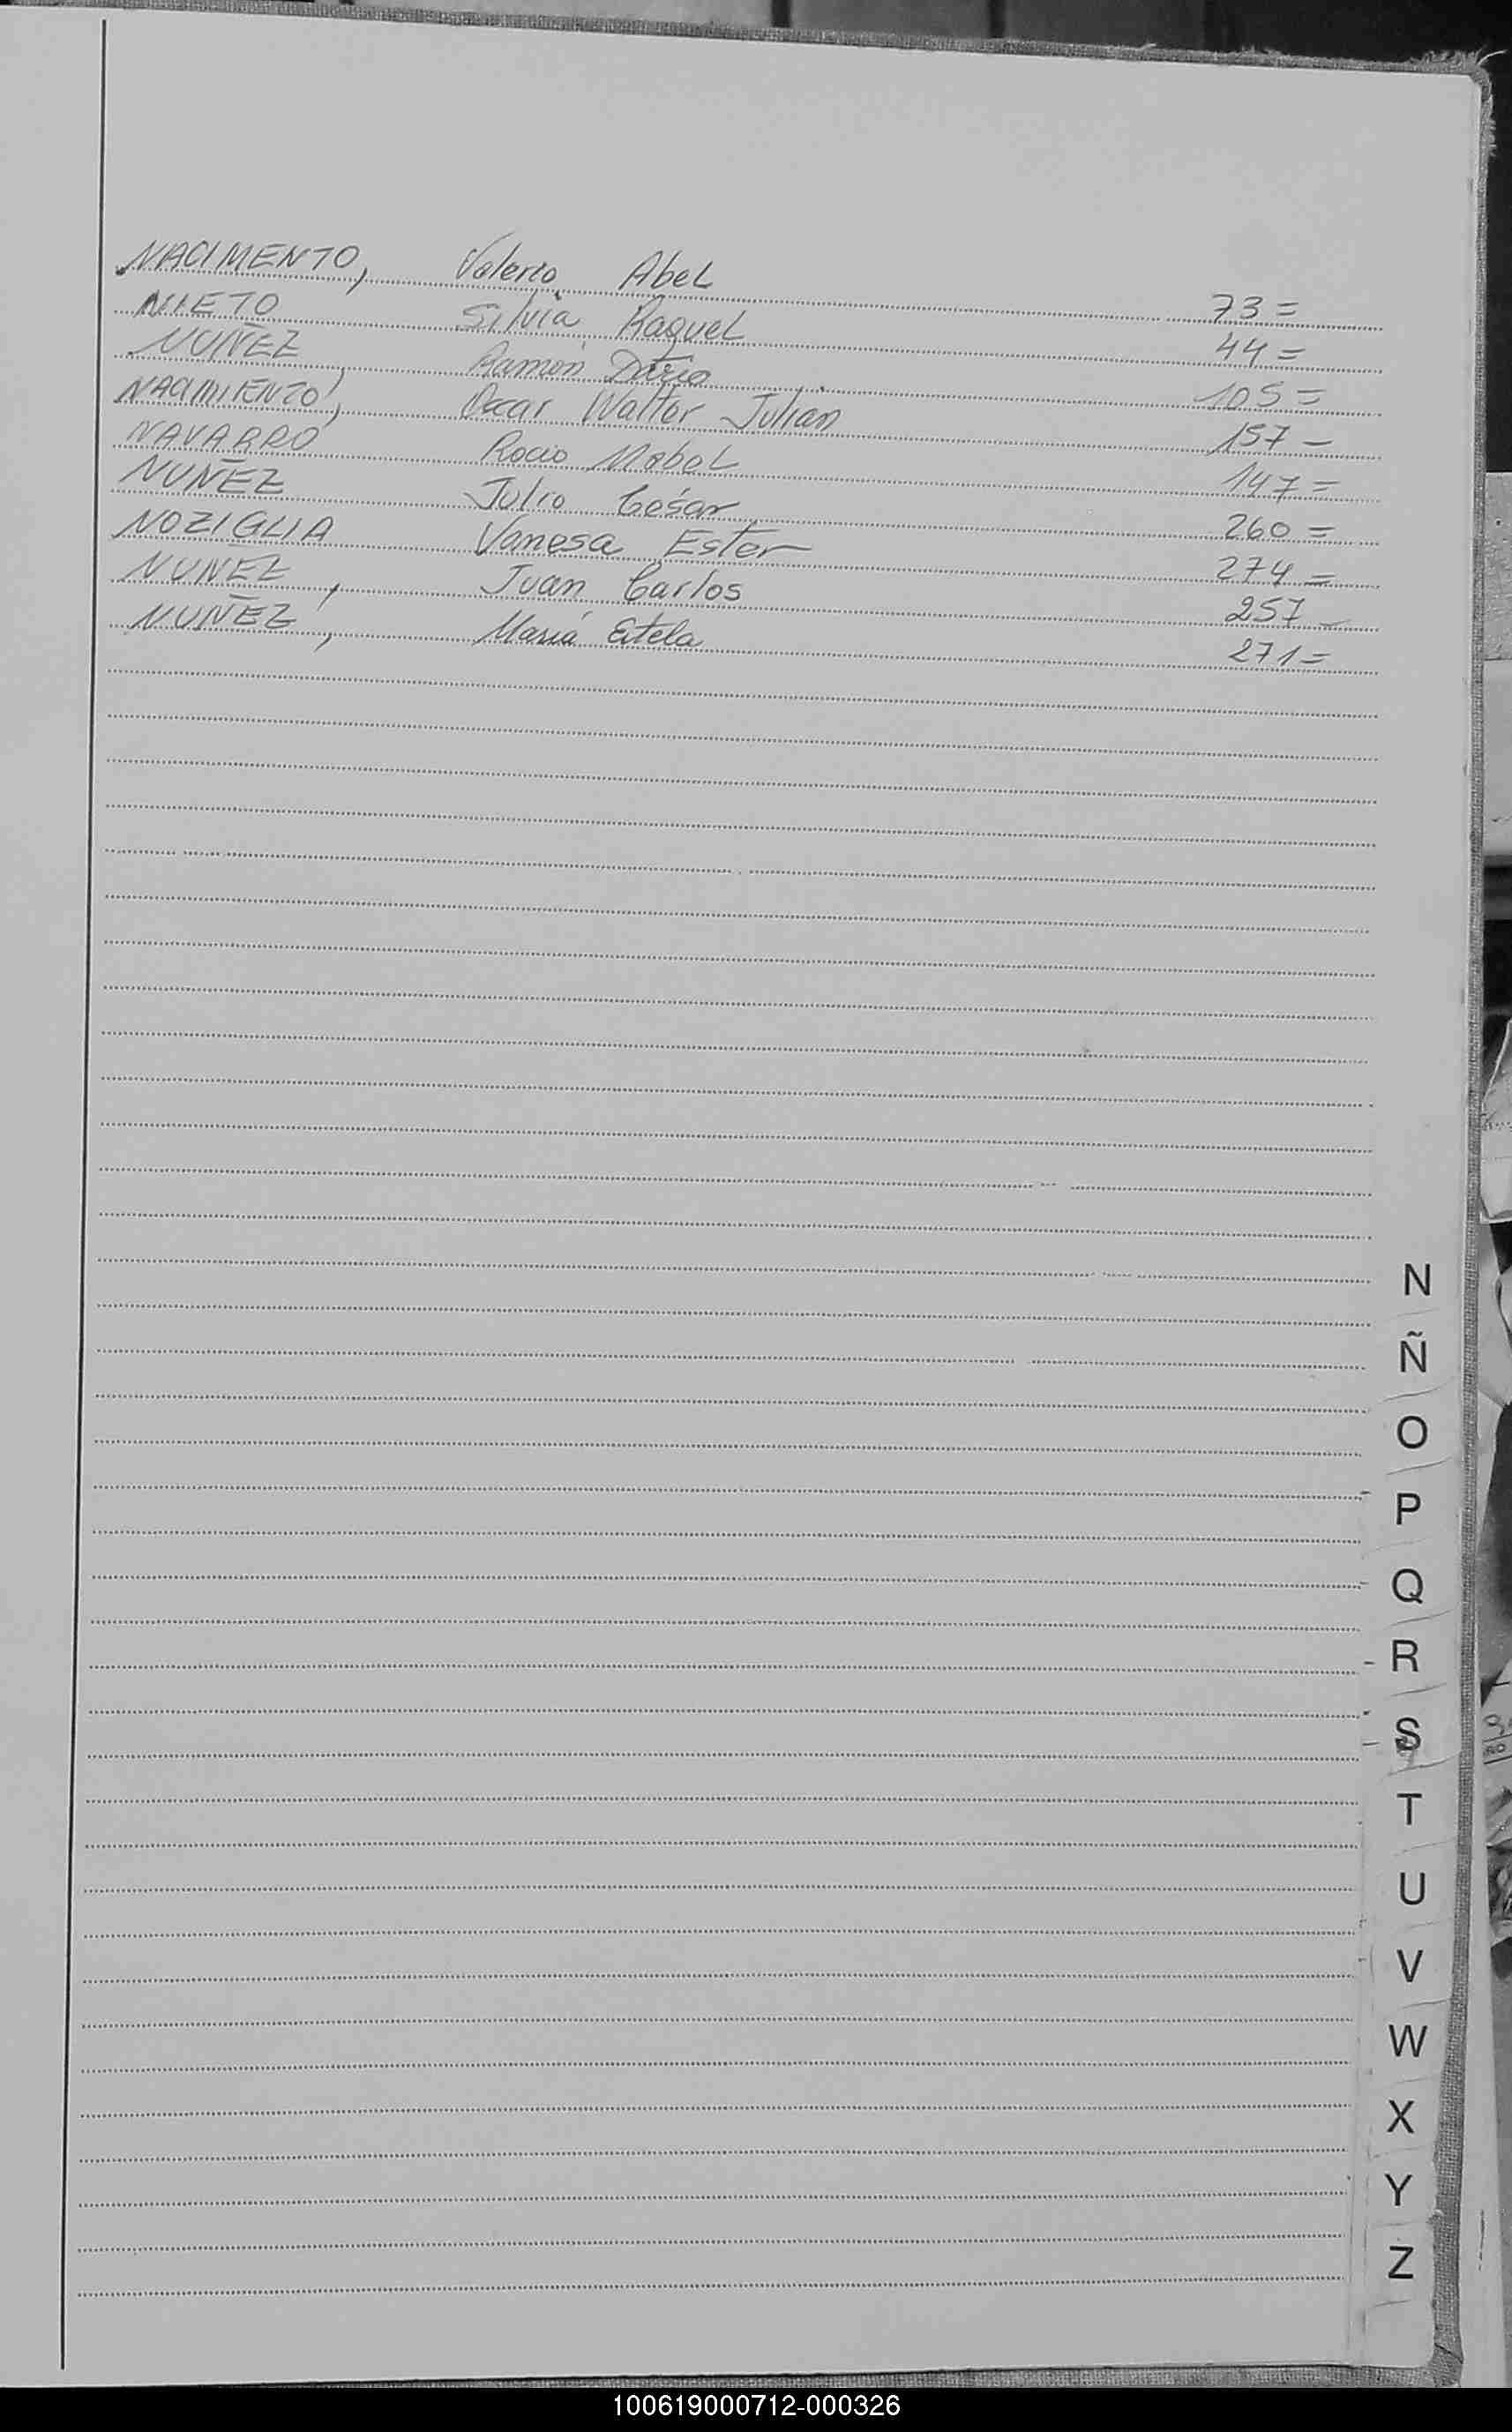 NACIMENTO, Valerio Abel 73=
NIETO Silvia Raquel 44=
NUÑEZ, Ramón Darío 105=
NACIMIENTO, Oscar Walter Julian 157-
NAVARRO Rocio Mabel 147=
NUÑEZ Julio César 260=
NOZIGLIA Vanesa Ester 274=
NUÑEZ, Juan Carlos 257-
NUÑEZ, María Estela 271=
N
Ñ
O
P
Q
R
S
T
U
V
W
X
Y
Z
100619000712-000326